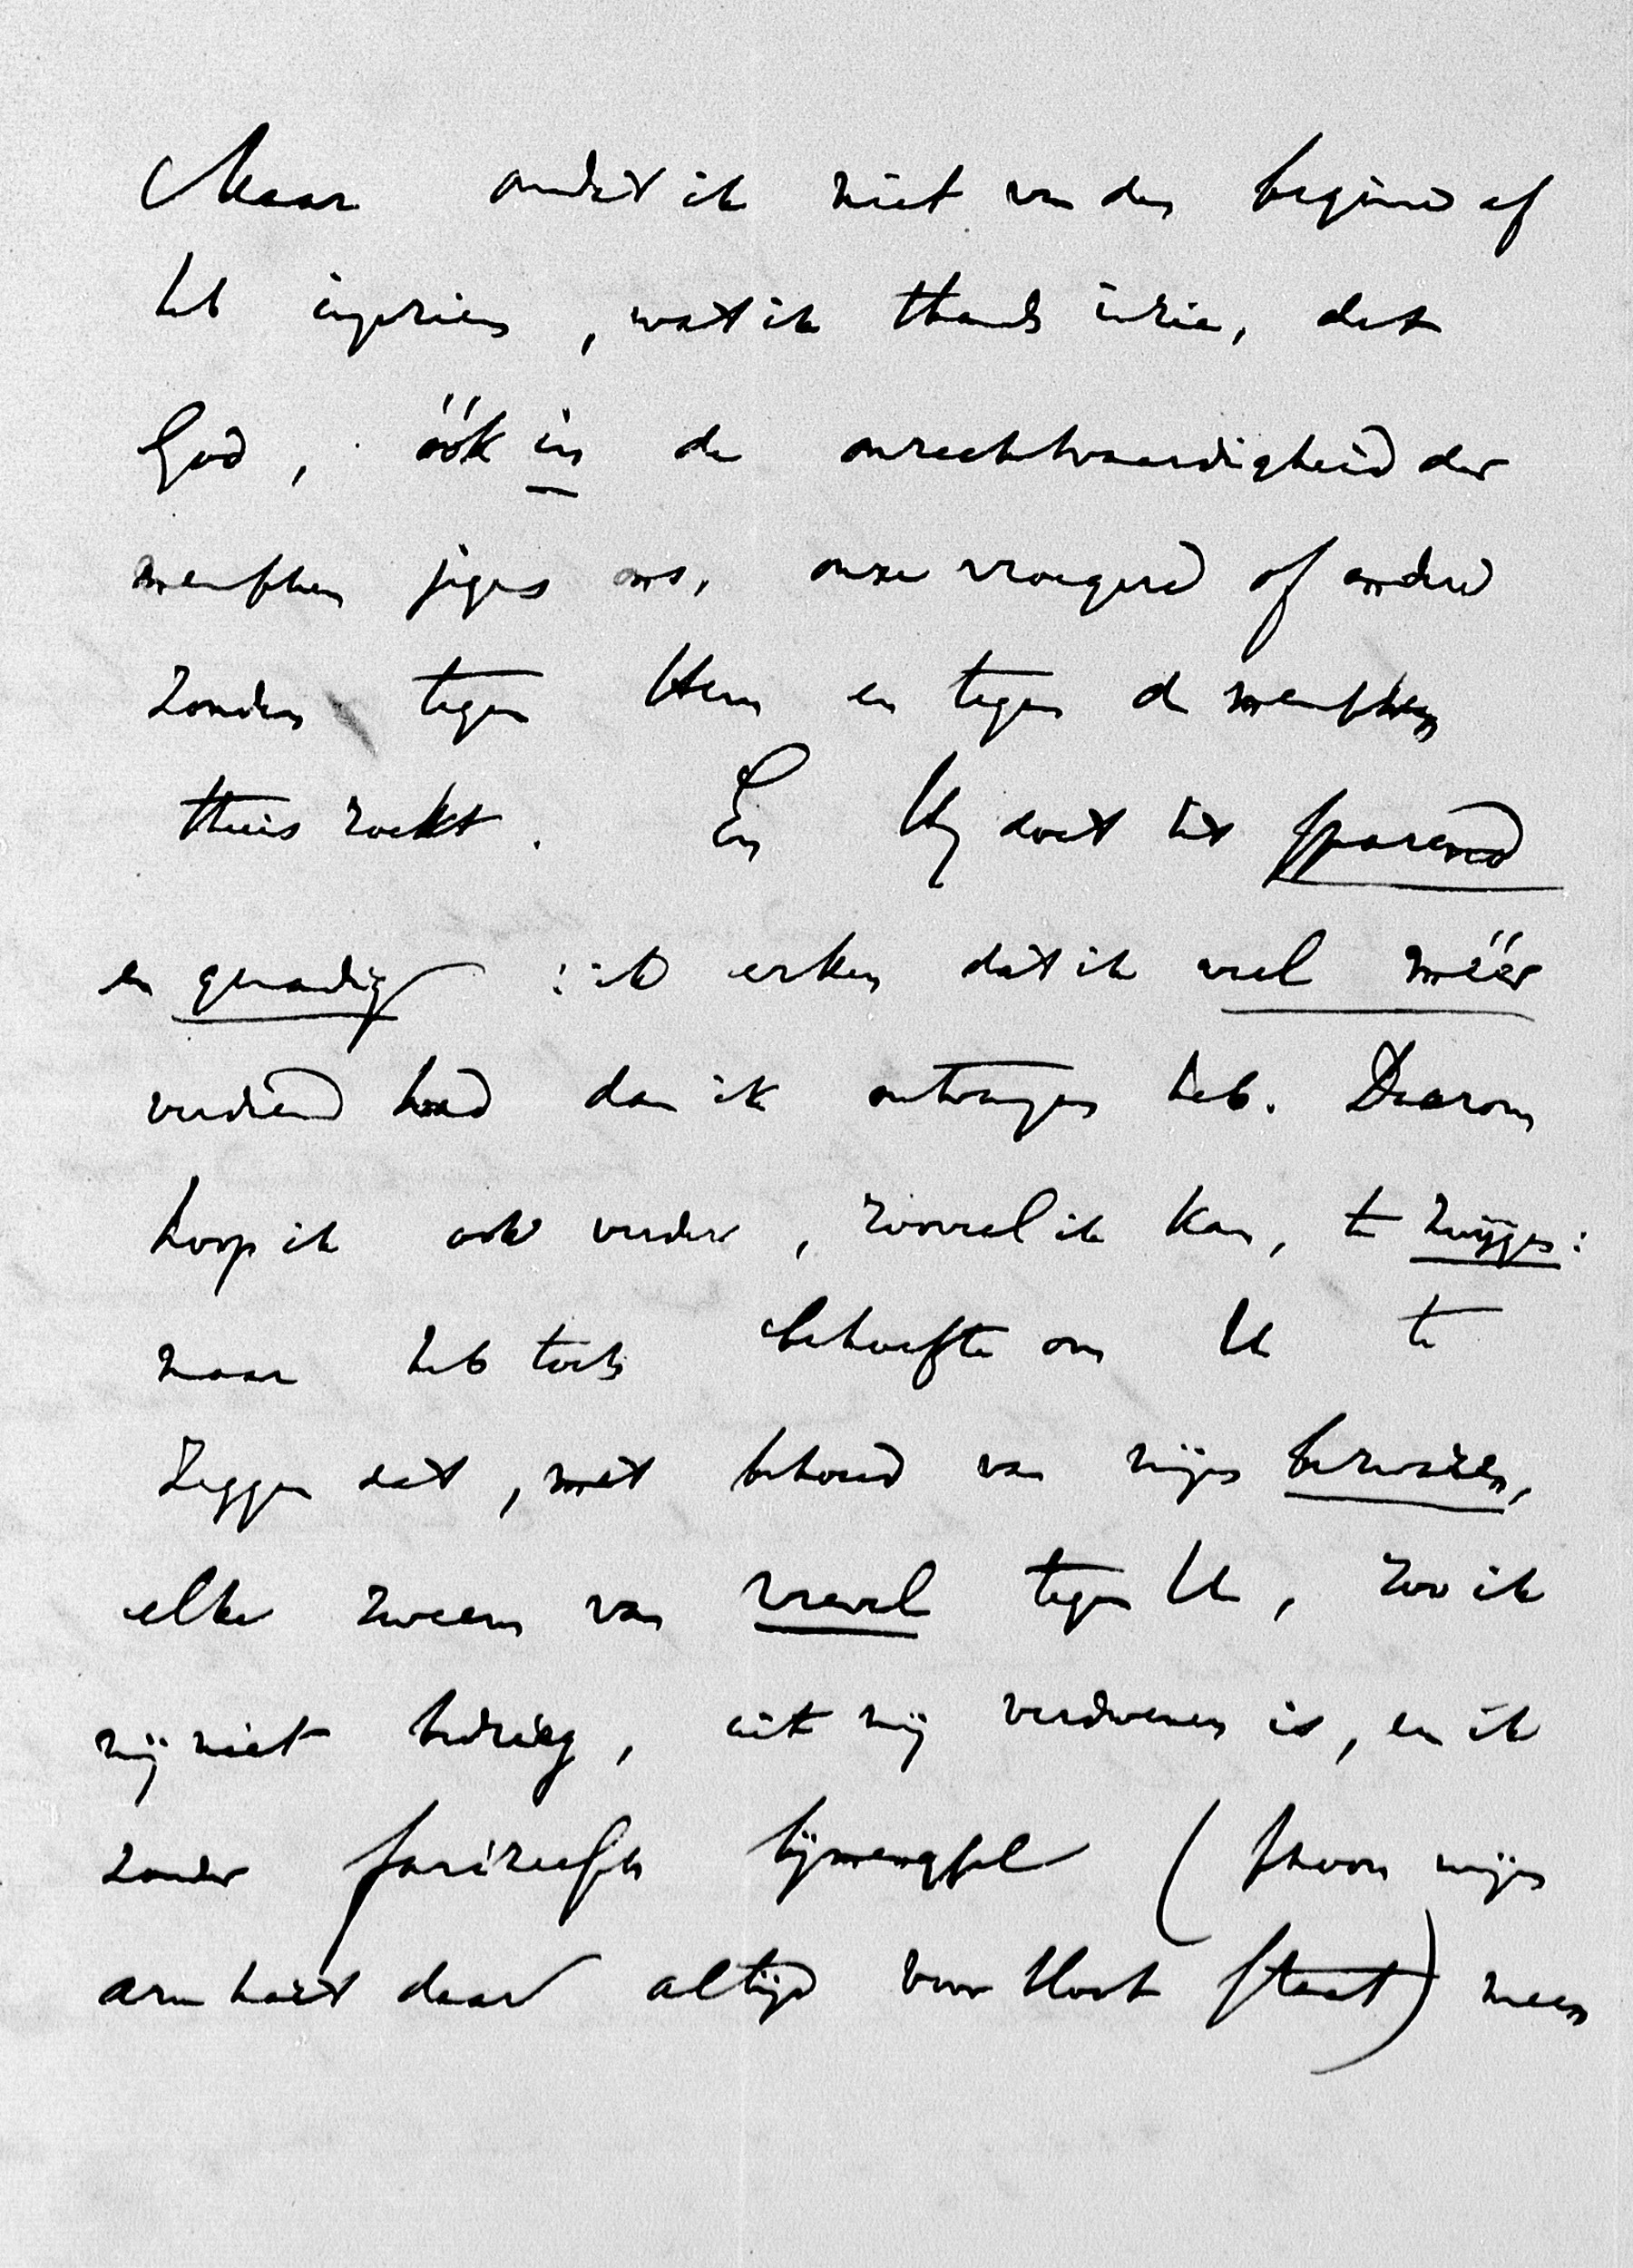 Maar omdat ik niet van den beginne af
heb ingezien, wat ik thans inzie, dat
God, óók in de onrechtvaardigheid der
menschen jegens ons, onze vroegere of andere
zonden tegen Hem en tegen de menschen
thuis zoekt. En Hij doet het sparend
en genadig: ik erken dat ik veel méér
verdiend had dan ik ontvangen heb. Daarom
hoop ik ook verder, zooveel ik kan, te zwijgen:
maar heb toch behoefte om U te
zeggen dat, met behoud van mijn bezwaren,
elke zweem van wrevel tegen U, zoo ik
mij niet bedrieg, uit mij verdwenen is, en ik
zonder farizeesch bijmengsel (schoon mijn
arm hart daar altijd voor bloot staat) meen